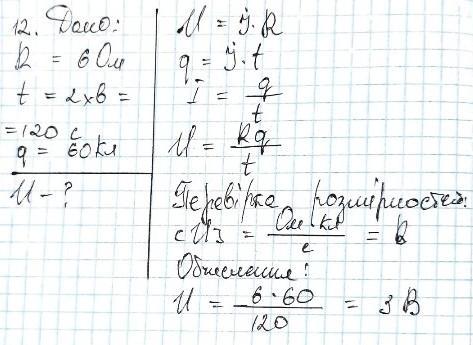 12. Дано:
R = 6 Ом
t = 2 хв =
= 120 с
q = 60 Кл
U - ?
U = I · R
q = I · t
I = q/t
U = Rq/t
Перевірка розмірностей:
[U] = Ом Кл/с = В
Обчислення:
U = 6 · 60/120 = 3 В